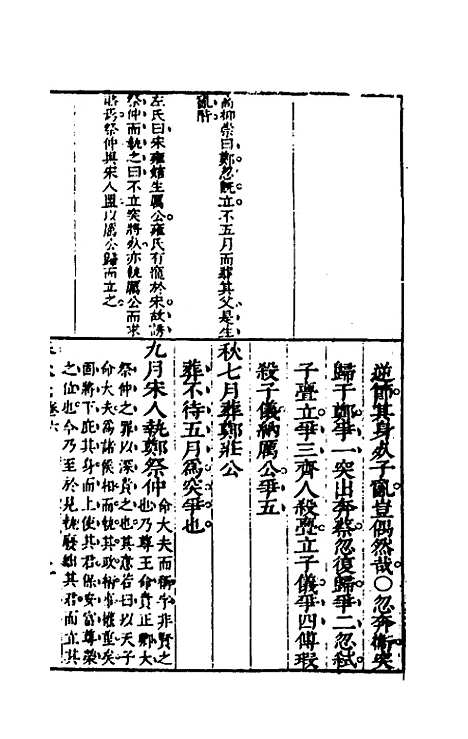 高抑崇曰鄭忽既立不五月而葬其父是生
亂階
左氏曰宋雍姞生厲公雍氏有寵於宋故誘
祭仲而執之曰不立突將死亦執厲公而求
賂焉祭仲與宋人盟以厲公歸而立之
逆節其身死子亂豈偶然哉○忽奔衛突
歸于鄭爭一突出奔蔡忽復歸爭二忽弑
子亹立爭三齊人殺亹立子儀爭四傅瑕
殺子儀納厲公爭五
秋七月葬鄭莊公
葬不待五月為突爭也
九月宋人執鄭祭仲
命大夫而稱字非賢之
也乃尊王命貴正鄭大
祭仲之罪以深責之也其意若曰以天子
命大夫為諸侯相而執其政柄事權重矣
固將下庇其身而上使其君保安富尊榮
之位也今乃至於見執廢絀其君而立其